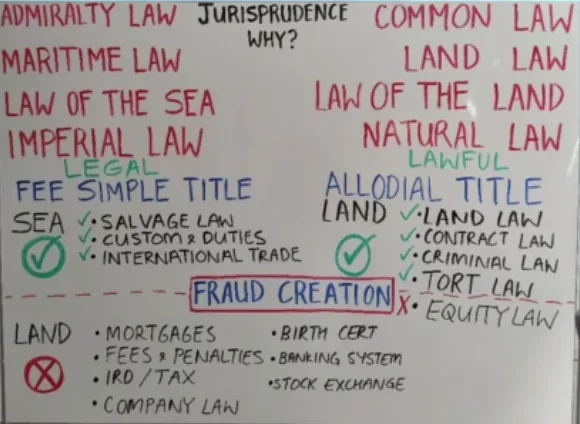 ADMIRALTY LAW
MARITIME LAW
LAW OF THE SEA
IMPERIAL LAW
LEGAL
FEE SIMPLE TITLE
SEA
• SALVAGE LAW
• CUSTOM & DUTIES
• INTERNATIONAL TRADE
JURISPRUDENCE
WHY?
COMMON LAW
LAND LAW
LAW OF THE LAND
NATURAL LAW
LAWFUL
ALLODIAL TITLE
LAND
✓• LAND LAW
✓• CONTRACT LAW
✓• CRIMINAL LAW
✓• TORT LAW
X• EQUITY LAW
FRAUD CREATION
LAND
• MORTGAGES
• FEES & PENALTIES
• IRD / TAX
• COMPANY LAW
• BIRTH CERT
• BANKING SYSTEM
• STOCK EXCHANGE